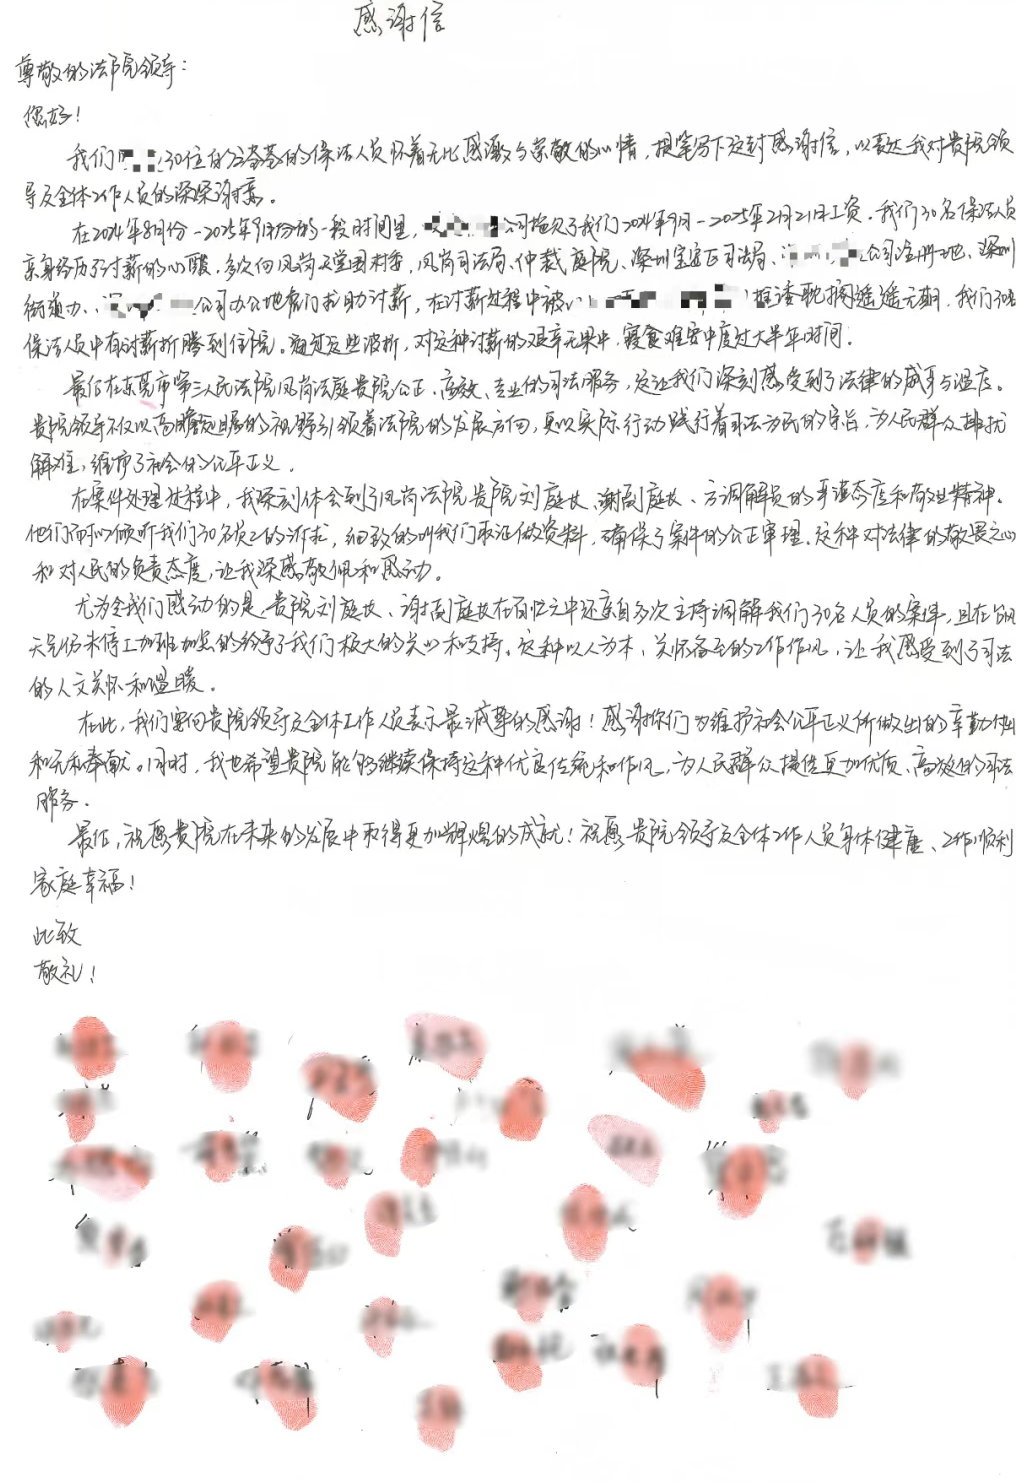 感谢信
尊敬的法院领导：
您好！
我们 30位的 的保洁人员怀着无比感激与崇敬的心情，提笔写下这封感谢信，以表达我对贵院领
导及全体工作人员的深深谢意。
在2024年8月份-2025年 月份的一段时间里， 公司拖欠了我们2024年9月-2025年2月21日工资，我们30名保洁人员
亲身经历了讨薪的心酸，多次向凤岗 村委，凤岗司法局、仲裁庭院、深圳宝安区司法局、 公司注册地、深圳
街道办、 公司办公地 门求助讨薪，在讨薪过程中被 推诿 遥遥无期，我们30名
保洁人员中有讨薪折腾到住院。 这些波折，对这种讨薪的艰辛无果中，寝食难安中度过大半年时间。
最后在东莞市第三人民法院凤岗法庭贵院公正、高效、专业的司法服务，这让我们深刻感受到了法律的威严与温度。
贵院领导不仅以高瞻远瞩的视野引领着法院的发展方向，更以实际行动践行着司法为民的宗旨，为人民群众排忧
解难，维护了社会的公平正义。
在案件处理过程中，我深刻体会到了凤岗法院贵院刘庭长、谢副庭长、方调解员的严谨态度和敬业精神。
他们 心倾听我们30名员工的诉求，细致的叫我们取证做资料，确保了案件的公正审理。这种对法律的敬畏之心
和对人民的负责态度，让我深感敬佩和感动。
尤为令我们感动的是，贵院刘庭长、谢副庭长在百忙之中还亲自多次主持调解我们30名人员的案件，且在
天气仍未停工加班加点的给予了我们极大的关心和支持。这种以人为本、关怀备至的工作作风，让我感受到了司法
的人文关怀和温暖。
在此，我们要向贵院领导及全体工作人员表示最诚挚的感谢！感谢你们为维护社会公平正义所做出的辛勤付出
和无私奉献。同时，我也希望贵院能够继续保持这种优良传统和作风，为人民群众提供更加优质、高效的司法
服务。
最后，祝愿贵院在未来的发展中取得更加辉煌的成就！祝愿贵院领导及全体工作人员身体健康、工作顺利
家庭幸福！
此致
敬礼！